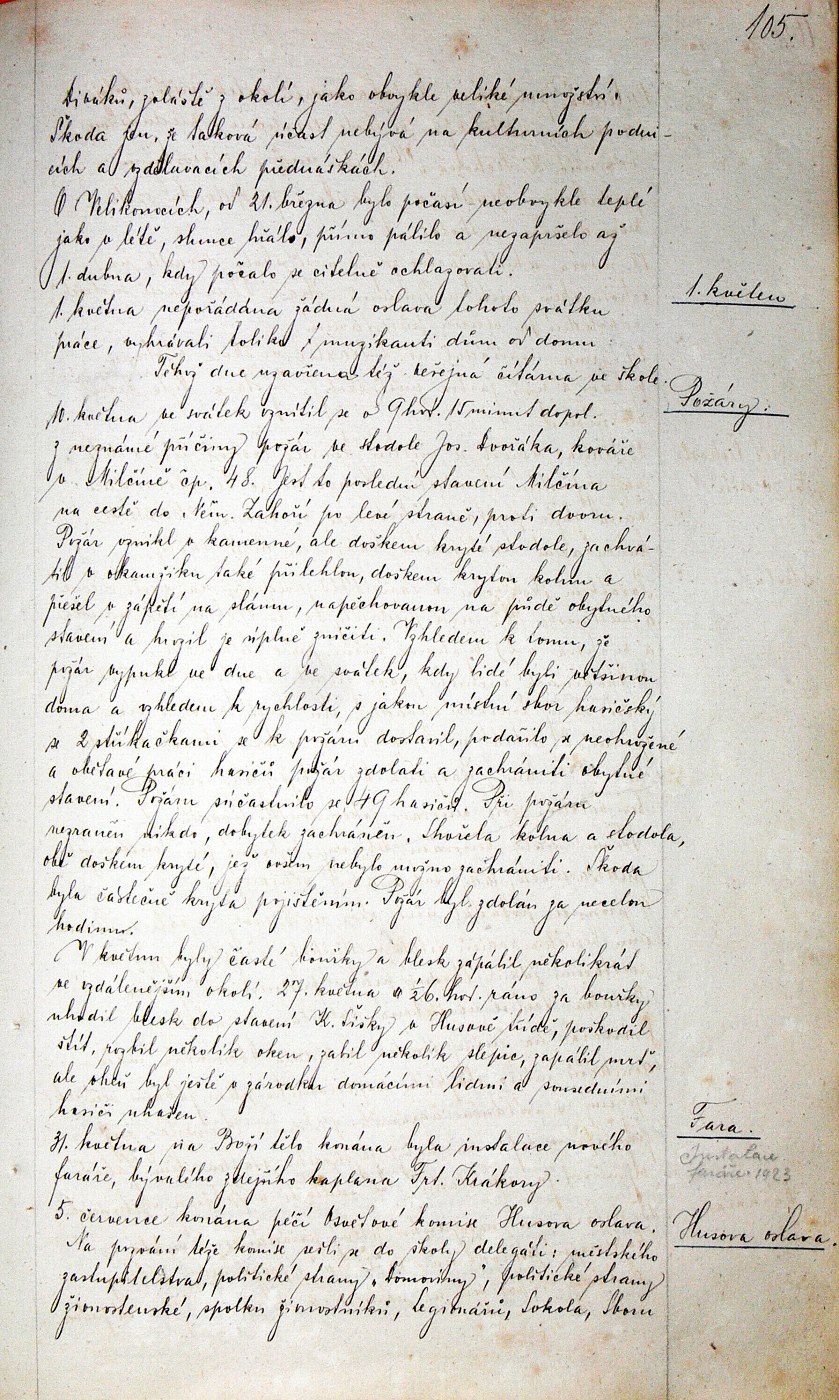 105.
Diváků, zvláště z okolí, jako obvykle veliké množství.
Škoda jen, že taková účast nebývá na kulturních podni-
cích a vzdělavacích přednáškách.
O Velikonocích, od 21. března bylo počasí neobvykle teplé
jako v létě, slunce hřálo, přímo pálilo a nezapršelo až
1. dubna, kdy počalo se citelně ochlazovati.
1. květen
1. května nepořádána žádná oslava tohoto svátku
práce, vyhrávali toliko muzikanti dům od domu.
Téhož dne uzavřena též veřejná čítárna ve škole.
Požáry.
10. května ve svátek vznítil se o 9 hod. 15 minut dopol.
z neznámé příčiny požár ve stodole Jos. Dvořáka, kováře
v Milčíně čp. 48. Jest to poslední stavení Milčína
na cestě do Něm. Zahoří po levé straně, proti dvoru.
Požár vznikl v kamenné, ale doškem kryté stodole, zachvá-
til v okamžiku také přilehlou, doškem krytou kolnu a
přešel v zápětí na slámu, napěchovanou na půdě obytného
stavení a hrozil je úplně zničiti. Vzhledem k tomu, že
požár vypukl ve dne a ve svátek, kdy lidé byli většinou
doma a vzhledem k rychlosti, s jakou místní sbor hasičský
se 2 stříkačkami se k požáru dostavil, podařilo se neohrožené
a obětavé práci hasičů požár zdolati a zachrániti obytné
stavení. Požáru súčastnilo se 49 hasičů. Při požáru
nezraněn nikdo, dobytek zachráněn. Shořela kolna a stodola,
obě doškem kryté, jež ovšem nebylo možno zachrániti. Škoda
byla částečně kryta pojištěním. Požár byl zdolán za necelou
hodinu.
V květnu byly časté bouřky a blesk zápálil několikrát
ve vzdálenějším okolí. 27. května o ½6. hod. ráno za bouřky
uhodil blesk do stavení K. Šišky v Husově třídě, poškodil
štít, rozbil několik oken, zabil několik slepic, zapálil mrť,
ale oheň byl ještě v zárodku domácími lidmi a sousedními
hasiči uhašen.
Fara.
Instalace
faráře 1923
31. května na Boží tělo konána byla instalace nového
faráře, bývalého zdejšího kaplana Frt. Krákory.
Husova oslava.
5. července konána péčí Osvětové komise Husova oslava.
Na pozvání téže komise sešli se do školy delegáti: městského
zastupitelstva, politické strany „Domoviny", politické strany
živnostenské, spolku živnostníků, Legionářů, Sokola, Sboru